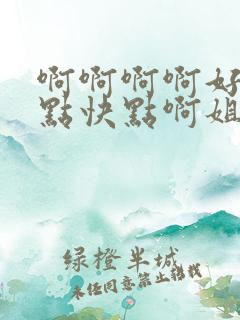 啊啊啊啊好
點快點啊姐
绿橙半城
未经同意禁止转载